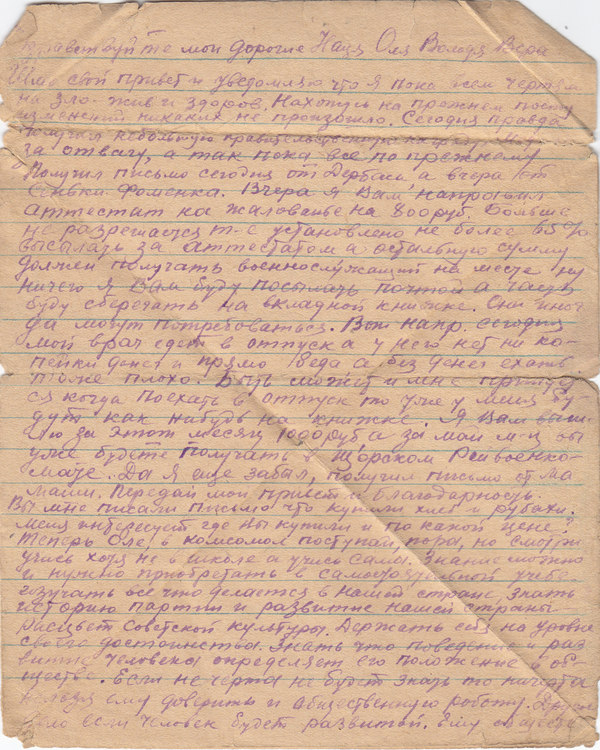 Здравствуйте мои дорогие Надя Оля Володя Вера
Шлю свой привет и уведомляю что я пока всем чертям
на зло жив и здоров. Нахожусь на прежнем посту
изменений никаких не произошло. Сегодня правда
получил небольшую правительственную награду
за отвагу, а так пока все по прежнему
Получил письмо сегодня от а вчера от
Фоменка. Вчера я Вам направил
аттестат на жалованье на 800 руб. Больше
не разрешается т-е установлено не более 65%
высылать за аттестатом а остальную сумму
должен получать военнослужащий на месте ну
ничего я Вам буду посылать почтой а часть
буду сберегать на вкладной книжке. Они иног
да могут потребоваться. Вот напр. сегодня
мой врач едет в отпуск а у него нет ни ко-
пейки денег и прямо беда а без денег ехать
тоже плохо. Быть может и мне придет
ся когда поехать в отпуск то уже у меня бу
дут как нибудь на книжке. Я Вам выш-
лю за этот месяц 1000 руб а за май м-ц вы
уже будете получать в Щорском Райвоенко-
мате. Да я еще забыл, получил письмо от Ма
маши. Передай мой привет и благодарность.
Вы мне писали письмо что купили хлеб и рубахи.
Меня интересует где Вы купили и по какой цене?
Теперь Оле: в комсомол поступай, пора, но смотри
учись хотя не в школе а учись сама. Знание можно
и нужно приобретать в самостоятельной учебе
изучать все что делается в нашей стране, знать
историю партии и развитие нашей страны
расцвет советской культуры. Держать себя на уровне
своего достоинства. Знать что поведение и раз
витие человека определяет его положение в об
ществе. если не черта не будет знать то ни черта
нельзя ему доверить и общественную работу. Другое
дело если человек будет развитой. Ему